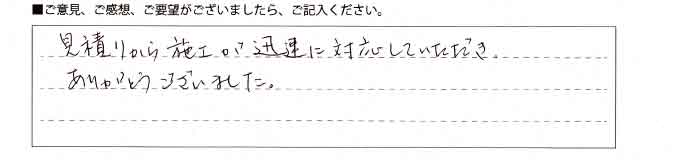 ■ご意見、ご感想、ご要望がございましたら、ご記入ください。
見積りから施工が迅速に対応していただき、
ありがとうございました。